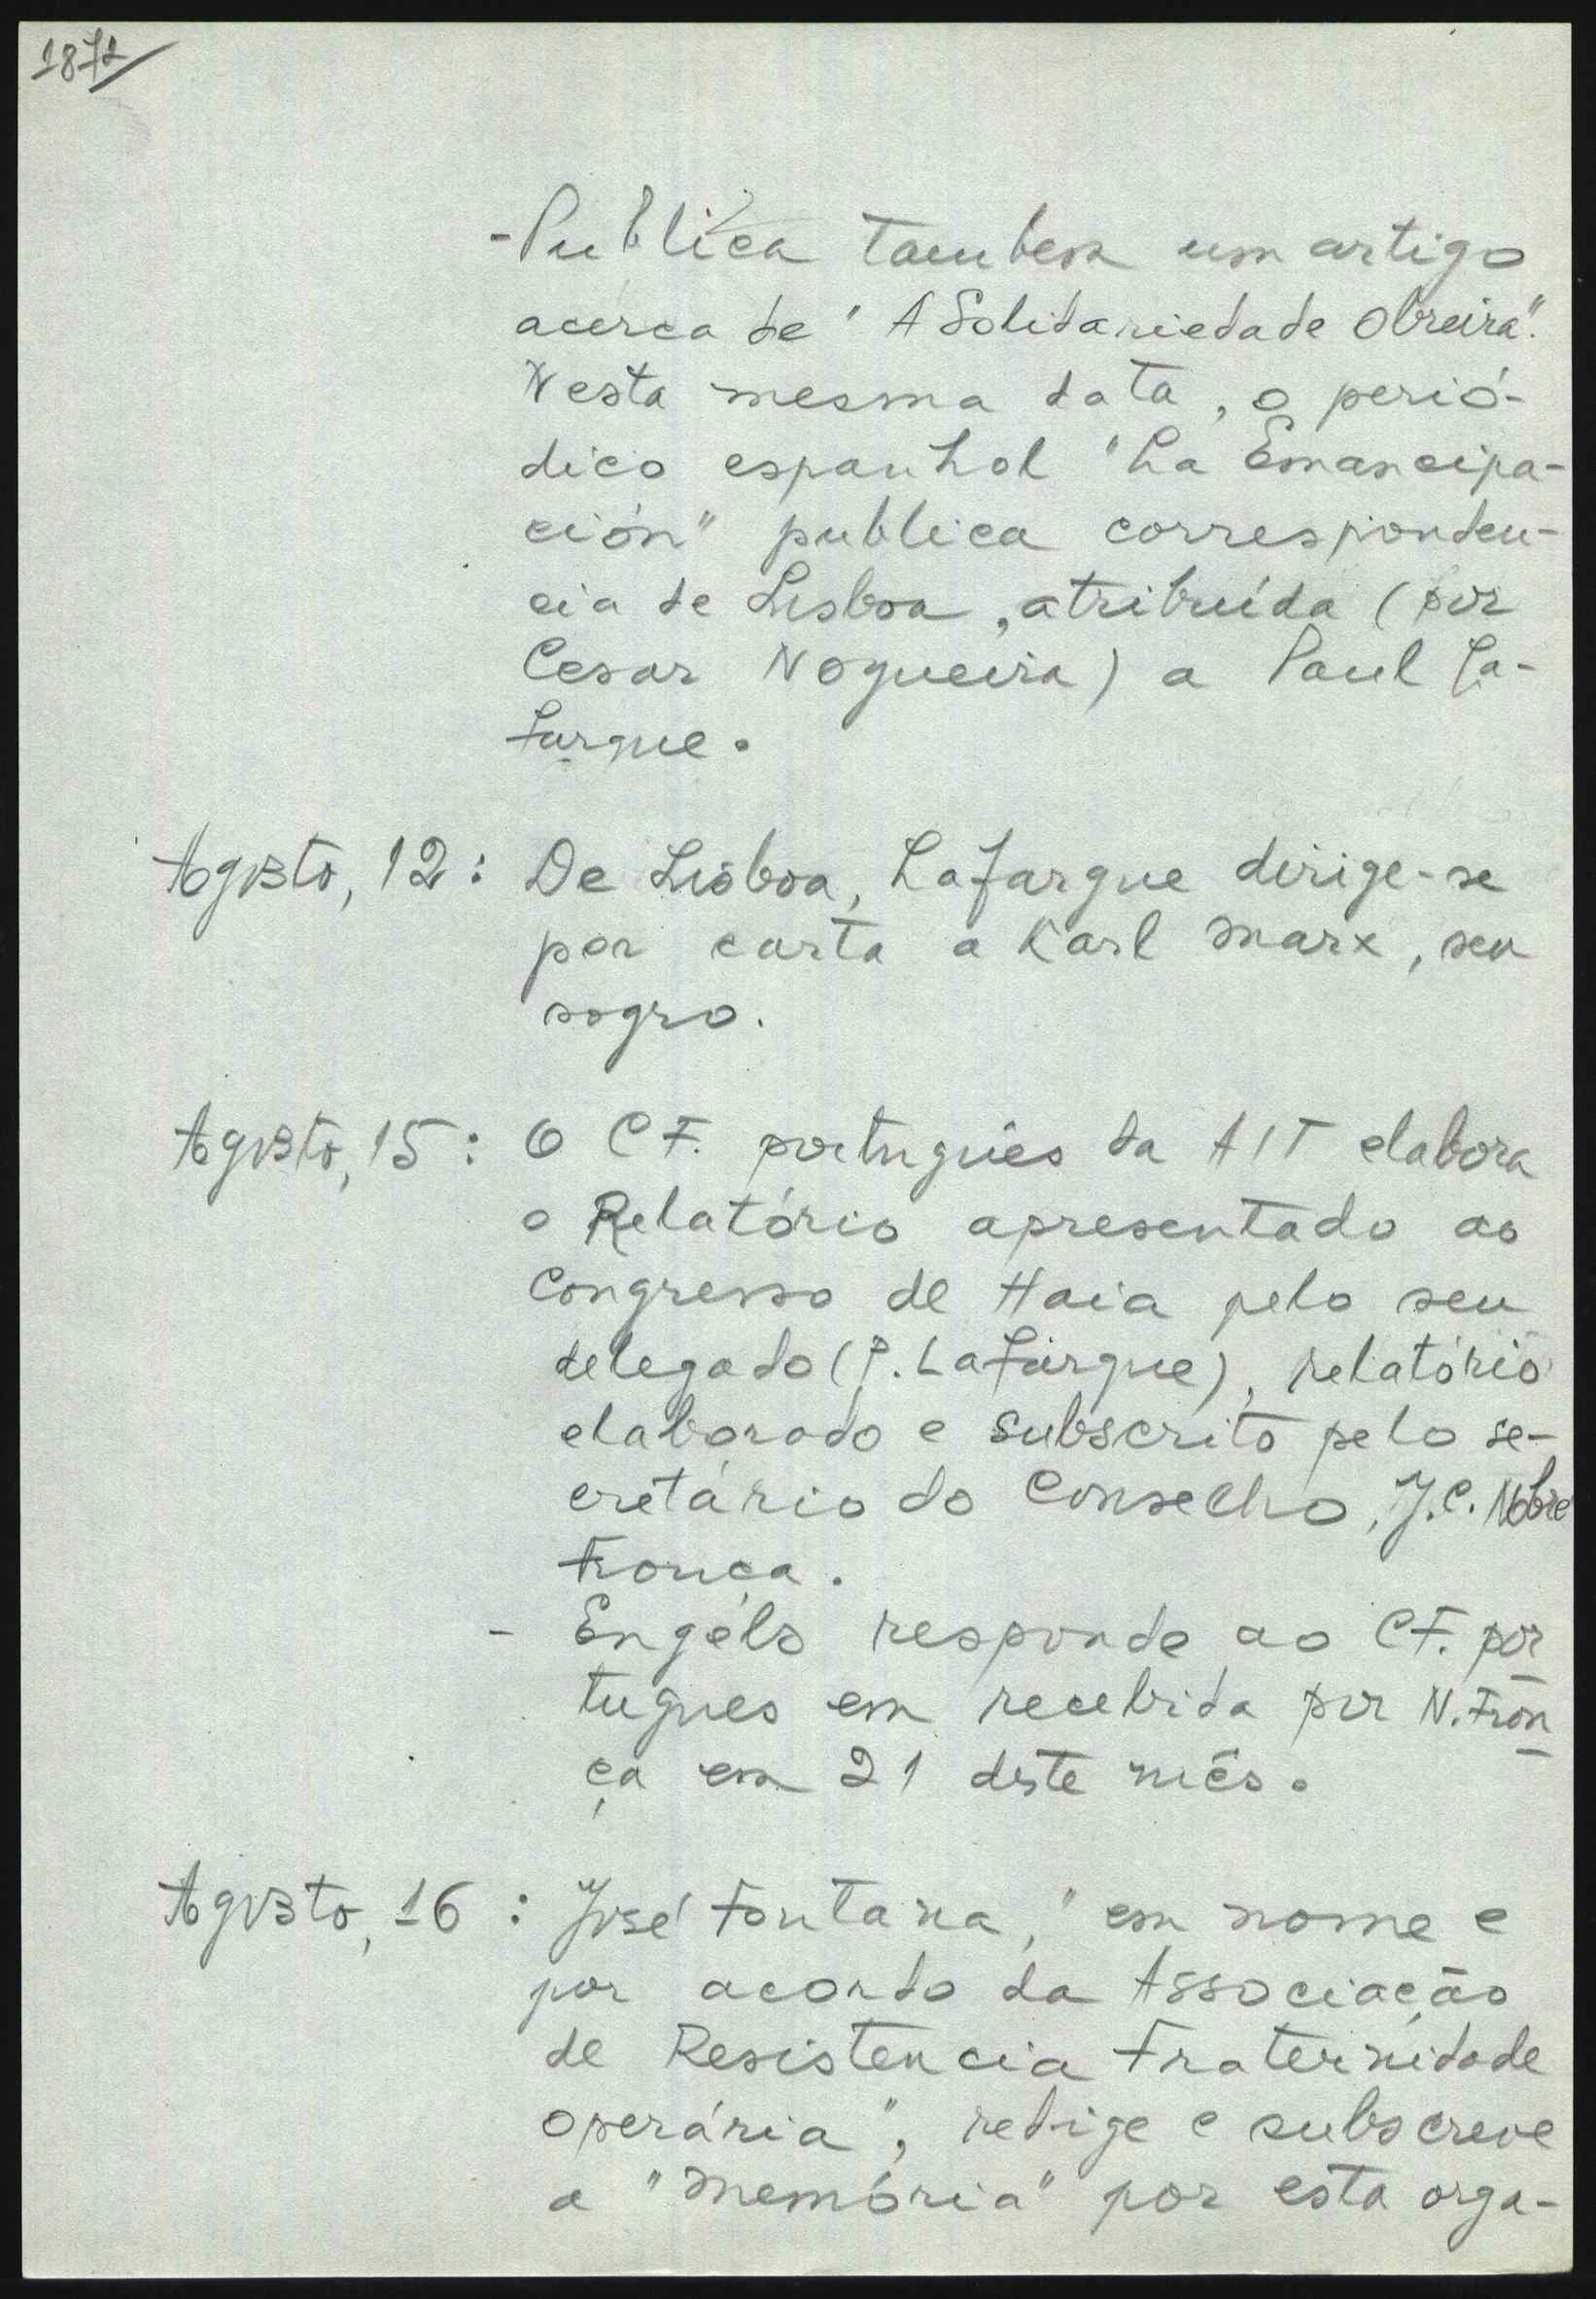 1872
- Publica tambem um artigo
acerca de "A Solidariedade Obreira".
Nesta mesma data, o perió-
dico espanhol "La Emancipa-
ción" publica corresponden-
cia de Lisboa, atribuída (por
Cesar Nogueira) a Paul La-
fargue.
Agosto, 12: De Lisboa, Lafargue dirige-se
por carta a Karl Marx, seu
sogro.
Agosto, 15: O CF. português da AIT elabora
o Relatório apresentado ao
Congresso de Haia pelo seu
delegado (P. Lafargue), relatório
elaborado e subscrito pelo se-
cretário do Conselho, J.C. Nobre
França.
- Engels responde ao CF. por
tugues em recebida por N. Fran
ça em 21 deste mês.
Agosto, 16: José Fontana, "em nome e
por acordo da Associação
de Resistencia Fraternidade
operária", redige e subscreve
a "Memória" por esta orga-